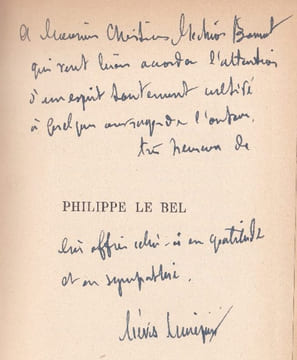 A Monsieur Christian Melchior Bonnet
qui veut bien accorder l'attention
d'un esprit hautement cultivé
à quelques ouvrages de l'auteur,
très heureux de
PHILIPPE LE BEL
lui offrir celui-ci en gratitude
et en sympathie.